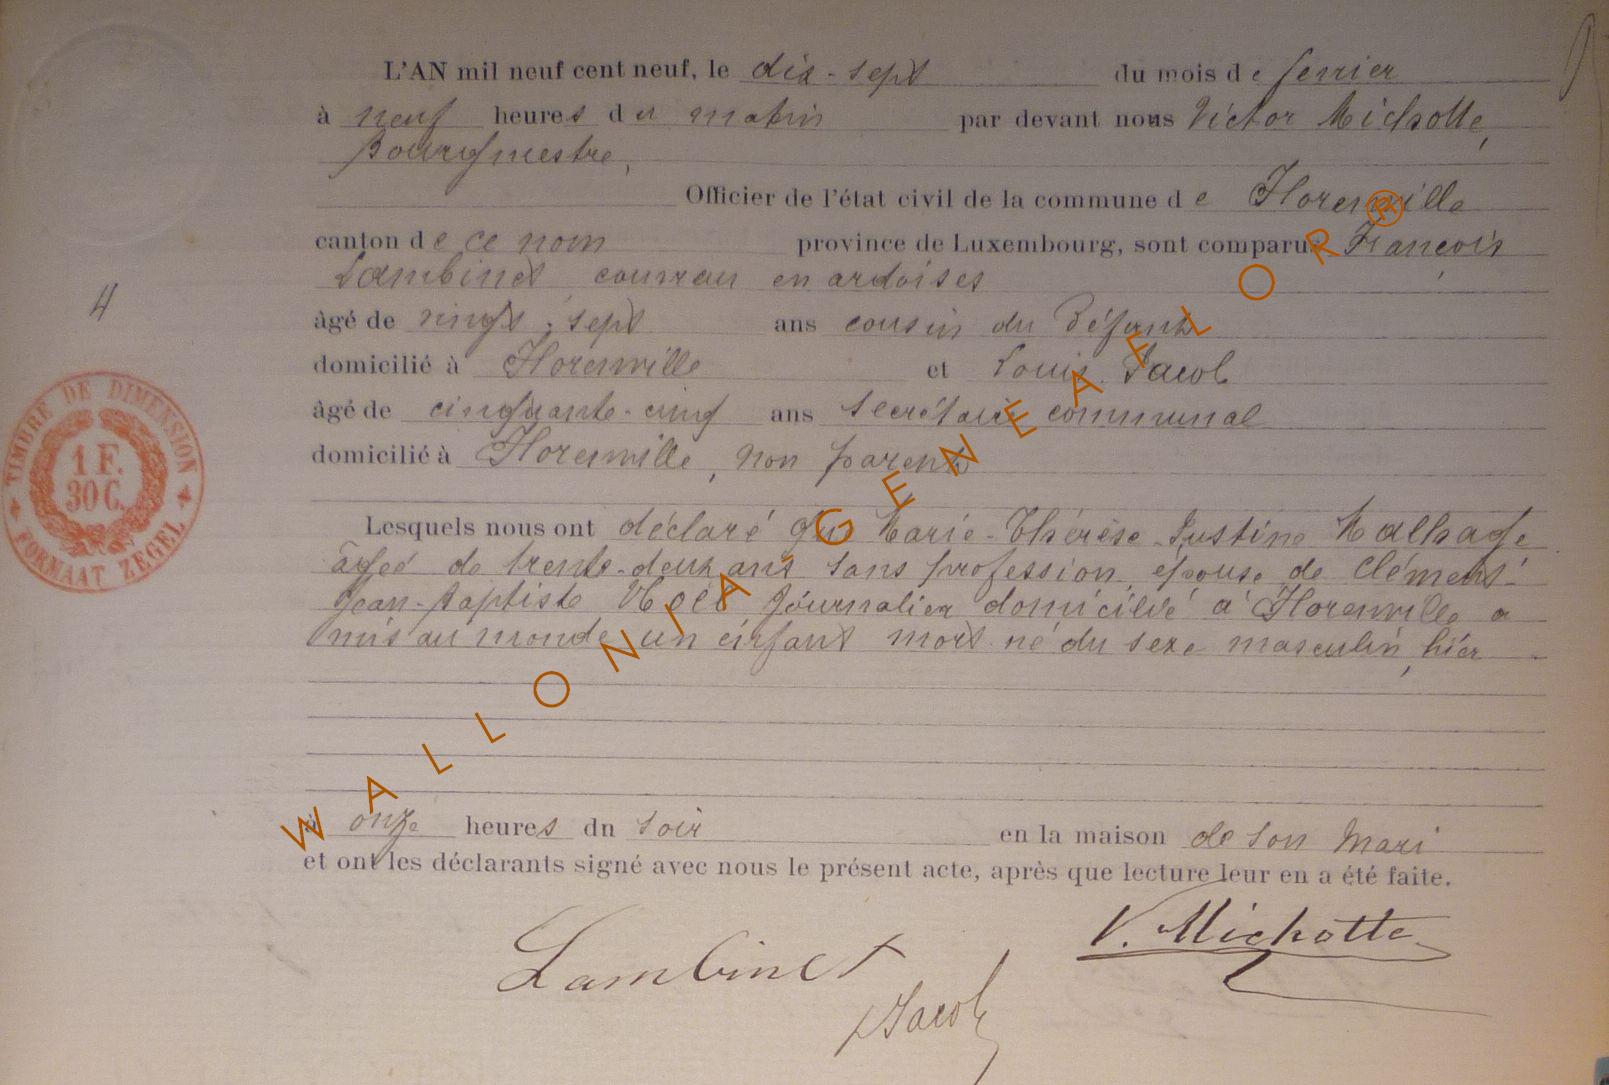 L'AN mil neuf cent neuf, le dix-sept du mois de février
à neuf heures du matin par devant nous Victor Michotte,
Bourgmestre,
Officier de l'état civil de la commune de Florenville
canton de ce nom province de Luxembourg, sont comparus François
Lambinet, couvreur en ardoises
4
âgé de vingt-sept ans cousin du défunt
domicilié à Florenville et Louis Jacob
âgé de cinquante-cinq ans secrétaire communal
domicilié à Florenville, non parent
TIMBRE DE DIMENSION
1 F.
30 C.
FORMAAT ZEGEL
Lesquels nous ont déclaré que Marie-Thérèse-Justine Malhage
âgée de trente-deux ans sans profession, épouse de Clément-
Jean-Baptiste Noël journalier domicilié à Florenville a
mis au monde un enfant mort-né du sexe masculin, hier
à onze heures du soir en la maison de son mari
et ont les déclarants signé avec nous le présent acte, après que lecture leur en a été faite.
V. Michotte
Lambinet
LJacob
WALLONIA-GENEAFLOR®